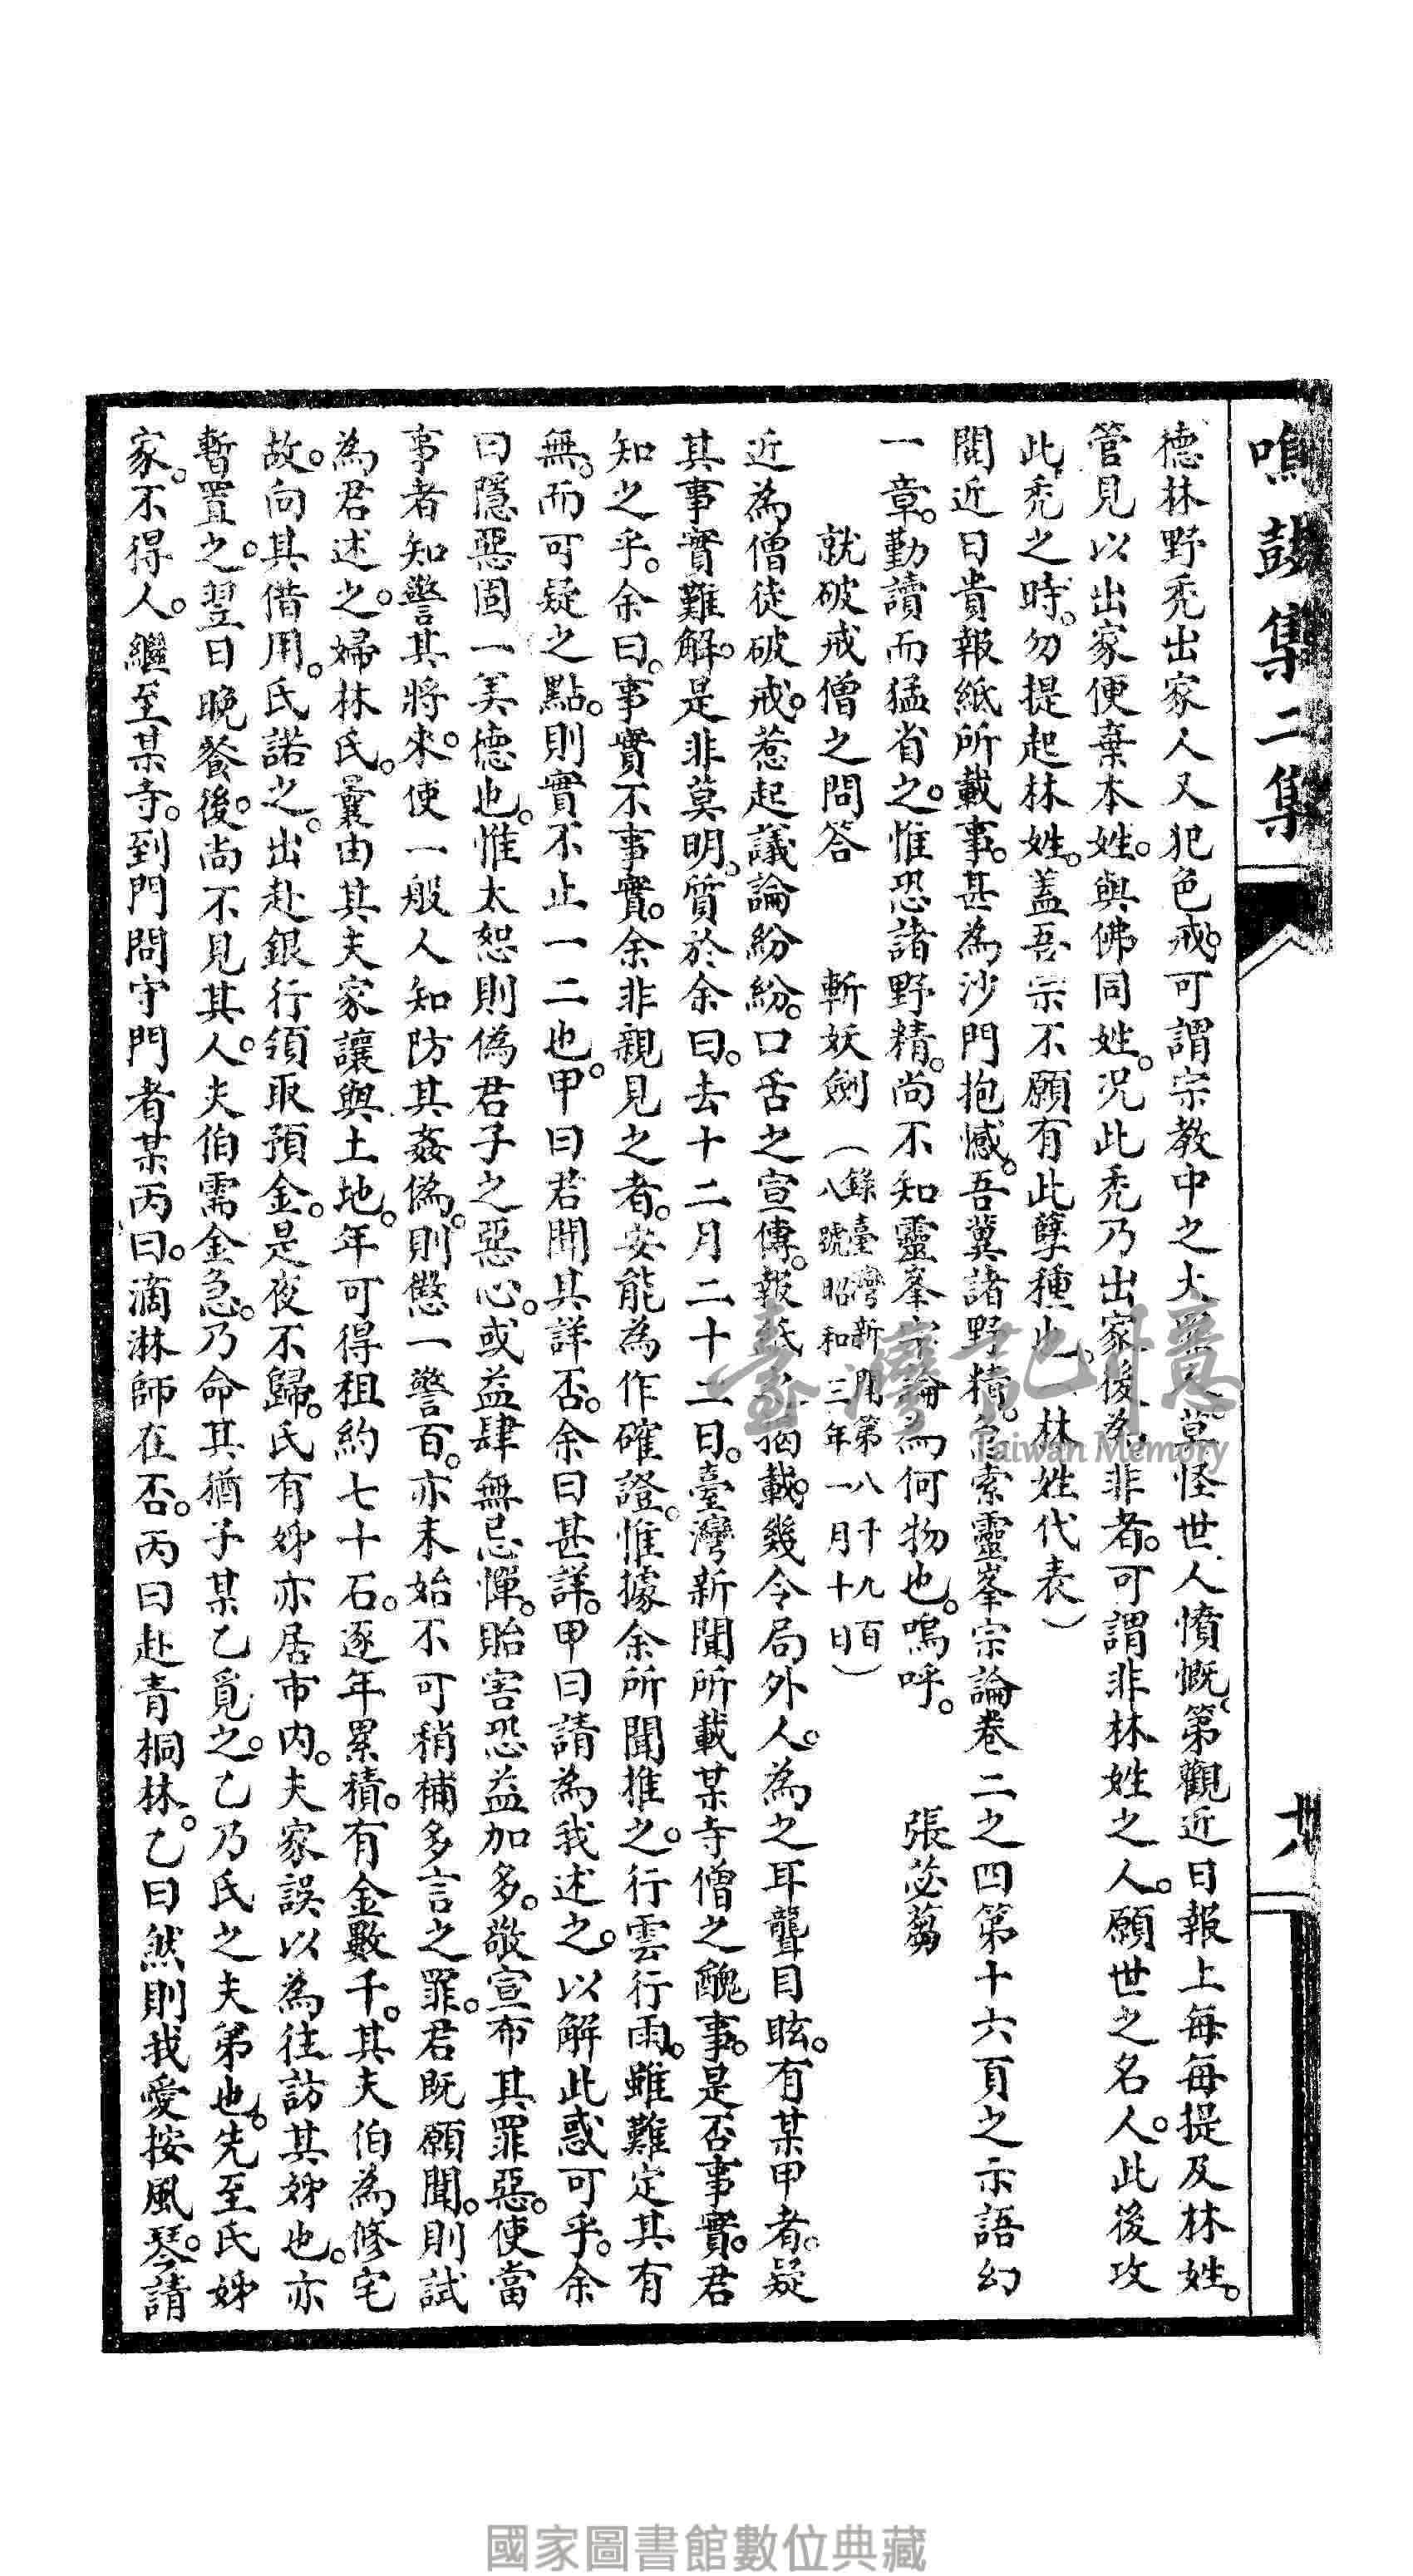 鳴鼓集二集
德林野禿出家人又犯色戒。可謂宗教中之大罪人。莫怪世人憤慨。第觀近日報上每每提及林姓。
管見以出家便棄本姓。與佛同姓。況此禿乃出家後為非者。可謂非林姓之人。願世之名人。此後攻
此禿之時。勿提起林姓。蓋吾宗不願有此孽種也。（林姓代表）
閱近日貴報紙所載事。甚為沙門抱憾。吾冀諸野精。急索靈峯宗論卷二之四第十六頁之示語幻
一章。勤讀而猛省之。惟恐諸野精。尚不知靈峯宗論為何物也。嗚呼。
張苾蒭
就破戒僧之問答　斬妖劍（錄臺灣新聞第八千九百八號昭和三年一月十日）
近為僧徒破戒。惹起議論紛紛。口舌之宣傳。報紙之揭載。幾令局外人。為之耳聾目眩。有某甲者。疑
其事實難解。是非莫明。質於余曰。去十二月二十二日。臺灣新聞所載某寺僧之醜事。是否事實。君
知之乎。余曰。事實不事實。余非親見之者。安能為作確證。惟據余所聞推之。行雲行雨。雖難定其有
無。而可疑之點。則實不止一二也。甲曰君聞其詳否。余曰甚詳。甲曰請為我述之。以解此惑可乎。余
曰隱惡固一美德也。惟太恕則偽君子之惡心。或益肆無忌憚。貽害恐益加多。敬宣布其罪惡。使當
事者知警其將來。使一般人知防其姦偽。則懲一警百。亦未始不可稍補多言之罪。君既願聞。則試
為君述之。婦林氏。曩由其夫家讓與土地。年可得租約七十石。逐年累積。有金數千。其夫伯為修宅
故。向其借用。氏諾之。出赴銀行領取預金。是夜不歸。氏有姊亦居市內。夫家誤以為往訪其姊也。亦
暫置之。翌日晚餐後。尚不見其人。夫伯需金急。乃命其猶子某乙覓之。乙乃氏之夫弟也。先至氏姊
家。不得人。繼至某寺。到門問守門者某丙曰。滴淋師在否。丙曰赴青桐林。乙曰然則我愛按風琴。請
臺灣記憶
Taiwan Memory
國家圖書館數位典藏